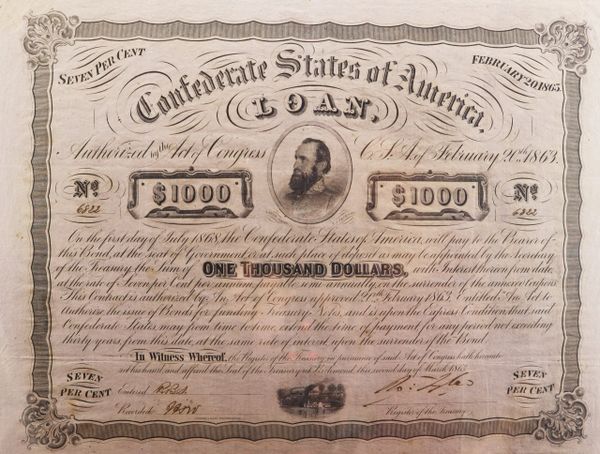 SEVEN PER CENT
FEBRUARY 20, 1863.
Confederate States of America.
LOAN,
Authorized by the Act of Congress C.S.A. of February 20th, 1863.
No 6822
$1000
$1000
No 6822
On the first day of July 1868, the Confederate States of America, will pay to the Bearer of
this Bond, at the seat of Government or at such place of deposit as may be appointed by the Secretary
of the Treasury, the Sum of ONE THOUSAND DOLLARS, with Interest thereon from date,
at the rate of Seven per Cent per annum, semi annually, on the surrender of the annexed Coupons
This Contract is authorized by An Act of Congress approved 20th February 1863, Entitled An Act to
Authorize the issue of Bonds for funding Treasury Notes, and is upon the Express Condition that said
Confederate States may from time to time, extend the time of payment for any period not exceeding
thirty years, from this date, at the same rate of interest upon the surrender of this Bond.
In Witness Whereof, the Register of the Treasury in pursuance of said Act of Congress hath hereunto
set his hand and affixed the Seal of the Treasury at Richmond, this second day of March 1863.
SEVEN PER CENT
Entered
Recorded
Register of the Treasury
SEVEN PER CENT